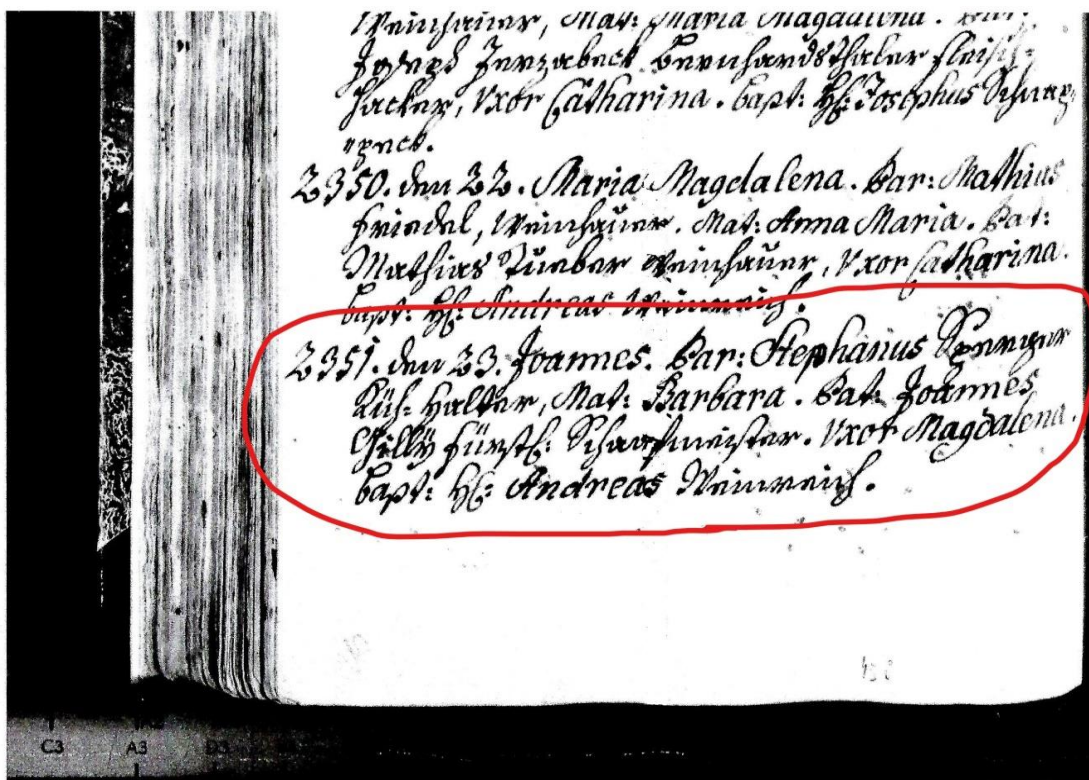 Weinhauer, Mat: Maria Magdalena. Pat:
Joseph Jerzabeck Bernhardsthaler fleisch=
hacker, Vxor Catharina. bapt: H: Josephus Schnap=
2350. den 22. Maria Magdalena. Par: Mathias
Friedel, Weinhauer. Mat: Anna Maria. Pat:
Mathias Tueber Weinhauer, Vxor Catharina.
bapt: H: Andreas Weinreich.
2351. den 23. Joannes. Par: Stephanus
Küh=Halter, Mat: Barbara. Pat: Joannes
Gilly fürstl: Schaafmeister. Vxor Magdalena.
bapt: H: Andreas Weinreich.
C3 A3 D3